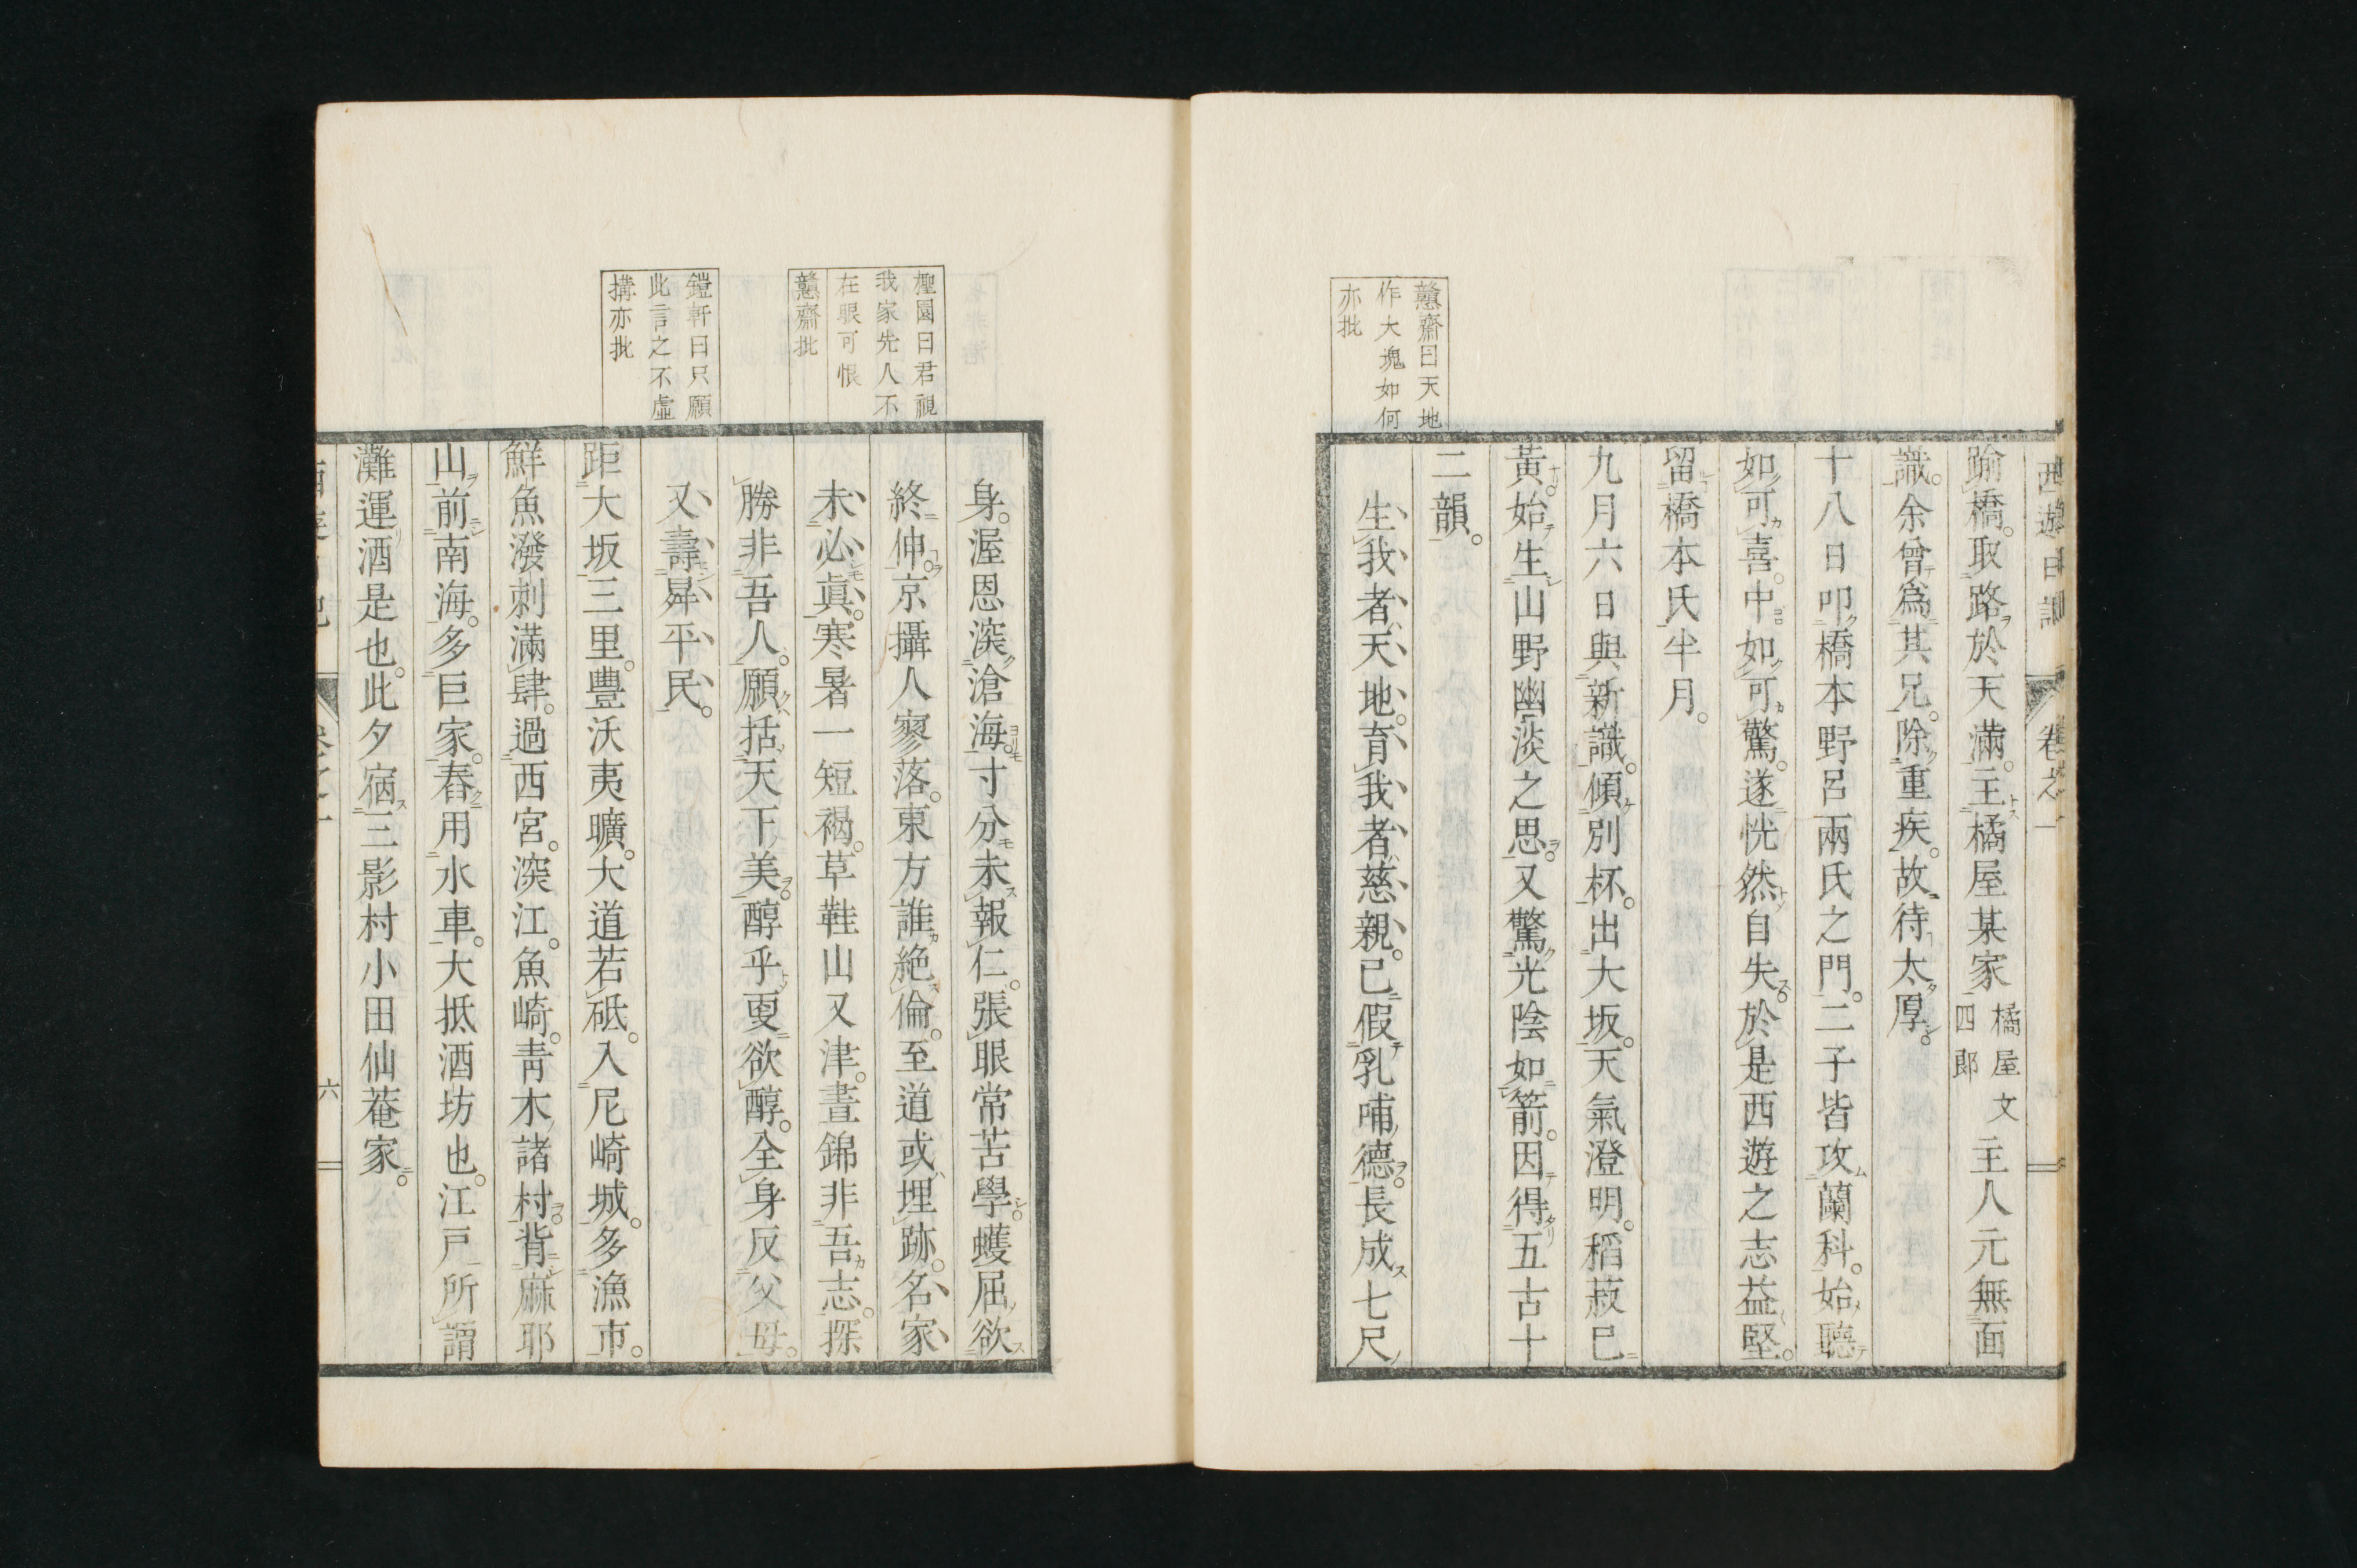 西遊日記
卷之一
踰橋。取路於天滿。主橘屋某家橘屋文四郎主人元無面
識。余曾爲其兄。除重疾。故待太厚。
十八日叩橋本野呂兩氏之門。二子皆攻蘭科。始聽
如可喜。中如可驚。遂恍然自失。於是西遊之志益堅。
留橋本氏半月。
九月六日與新識。傾別杯。出大坂。天氣澄明。稻菽已
黃。始生山野幽淡之思。又驚光陰如箭。因得五古十
二韻。
生我者天地。育我者慈親。已假乳哺德。長成七尺
慤齋曰天地
作大塊如何
亦批
身。渥恩深滄海。寸分未報仁。張眼常苦學。蠖屈欲
終伸。京攝人寥落。東方誰絶倫。至道或埋跡。名家
未必眞。寒暑一短褐。草鞋山又津。晝錦非吾志。探
勝非吾人。願括天下美。醇乎更欲醇。全身反父母。
又壽昇平民。
距大坂三里。豐沃夷曠。大道若砥。入尼崎城。多漁市。
鮮魚潑刺滿肆。過西宮。深江。魚崎。青木諸村。背麻耶
山。前南海。多巨家。舂用水車。大抵酒坊也。江戸所謂
灘運酒是也。此夕宿三影村小田仙菴家。
檉園曰君視
我家先人不
在眼可恨
慤齋批
鎧軒曰只願
此言之不虛
搆亦批
六